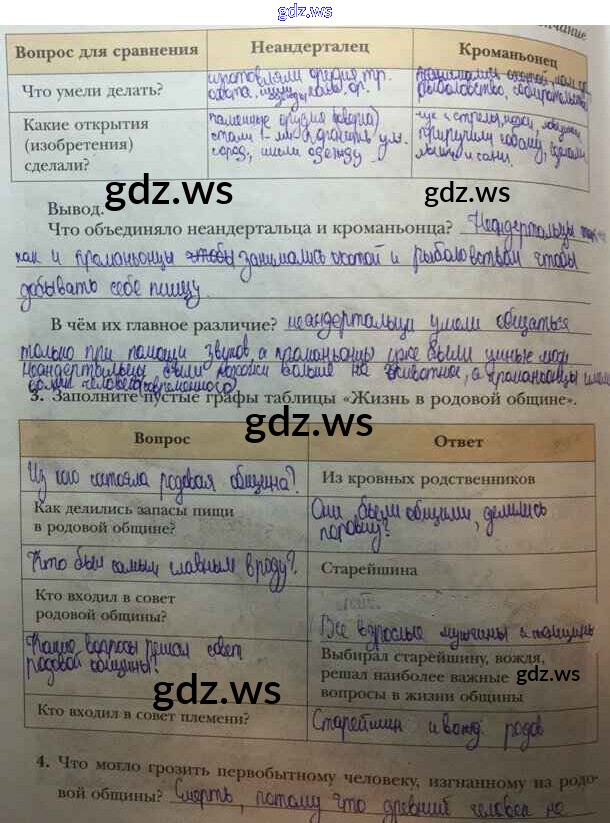 gdz.ws
Вопрос для сравнения Неандерталец Кроманьонец
Что умели делать?
изготовляли орудия тр.
охота,
рыболовство, собирательство
Какие открытия
(изобретения)
сделали?
каменные орудия
стали
город, шили одежду
лук и стрелы,
приручили собаку, сделали
и сани.
gdz.ws gdz.ws
Вывод.
Что объединяло неандертальца и кроманьонца? Неандертальцы так же
как и кроманьонцы чтобы занимались охотой и рыболовством чтобы
добывать себе пищу.
В чём их главное различие? неандертальцы умели общаться
только при помощи звуков, а кроманьонцы уже были умные люди
неандертальцы были похожи больше на животное, а кроманьонцы
человека современного
3. Заполните пустые графы таблицы «Жизнь в родовой общине».
gdz.ws
Вопрос Ответ
Из кого состояла родовая община? Из кровных родственников
Как делились запасы пищи
в родовой общине?
Они были общими, делились
поровну?
Кто был самым главным в роду? Старейшина
Кто входил в совет
родовой общины?
Все взрослые мужчины и женщины
Какие вопросы решал совет
родовой общины?
Выбирал старейшину, вождя,
решал наиболее важные
вопросы в жизни общины
gdz.ws gdz.ws
Кто входил в совет племени? Старейшин и вожд. родов
4. Что могло грозить первобытному человеку, изгнанному из родо-
вой общины? Смерть, потому что древний человек не
gdz.ws